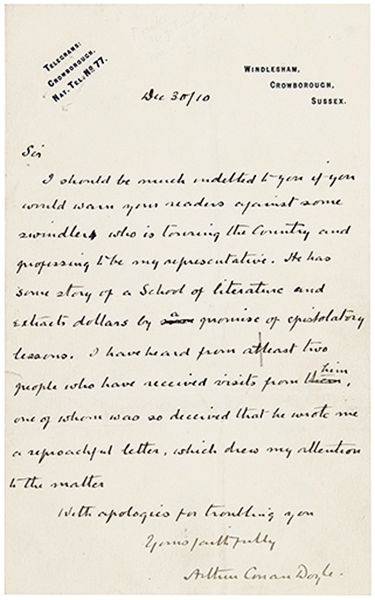 TELEGRAMS:
CROWBOROUGH.
NAT. TEL. NO 77.
WINDLESHAM,
CROWBOROUGH,
SUSSEX.
Dec 30/10
Sir
I should be much indebted to you if you
would warn your readers against some
swindler who is touring the Country and
professing to be my representative. He has
some story of a School of literature and
extracts dollars by a promise of epistolatory
lessons. I have heard from at least two
people who have received visits from him,
one of whom was so deceived that he wrote me
a reproachful letter, which drew my attention
to the matter
With apologies for troubling you
Yours faithfully
Arthur Conan Doyle.